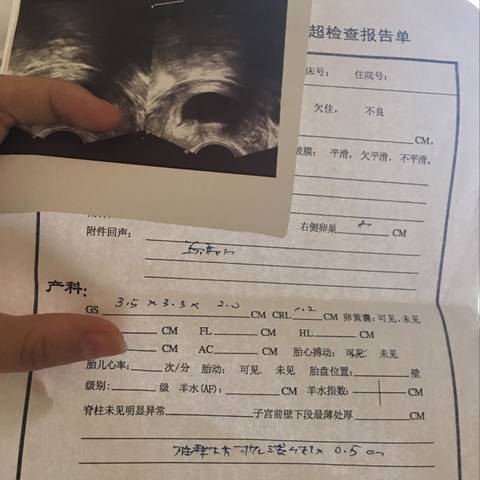 超检查报告单
床号： 住院号：
欠佳， 不良
CM，
膜： 平滑，欠平滑，不平滑，
右侧卵巢 CM
附件回声：
产科：
GS 3.5 × 3.3 × 2.0 CM CRL 1.2 CM 卵黄囊：可见、未见
CM FL CM HL CM
CM AC CM 胎心搏动： 可见 未见
胎儿心率： 次/分 胎动： 可见 未见 胎盘位置： 壁
级别： 级 羊水(AF)： CM 羊水指数： CM
脊柱未见明显异常 子宫前壁下段最薄处厚 CM
× 0.5 cm